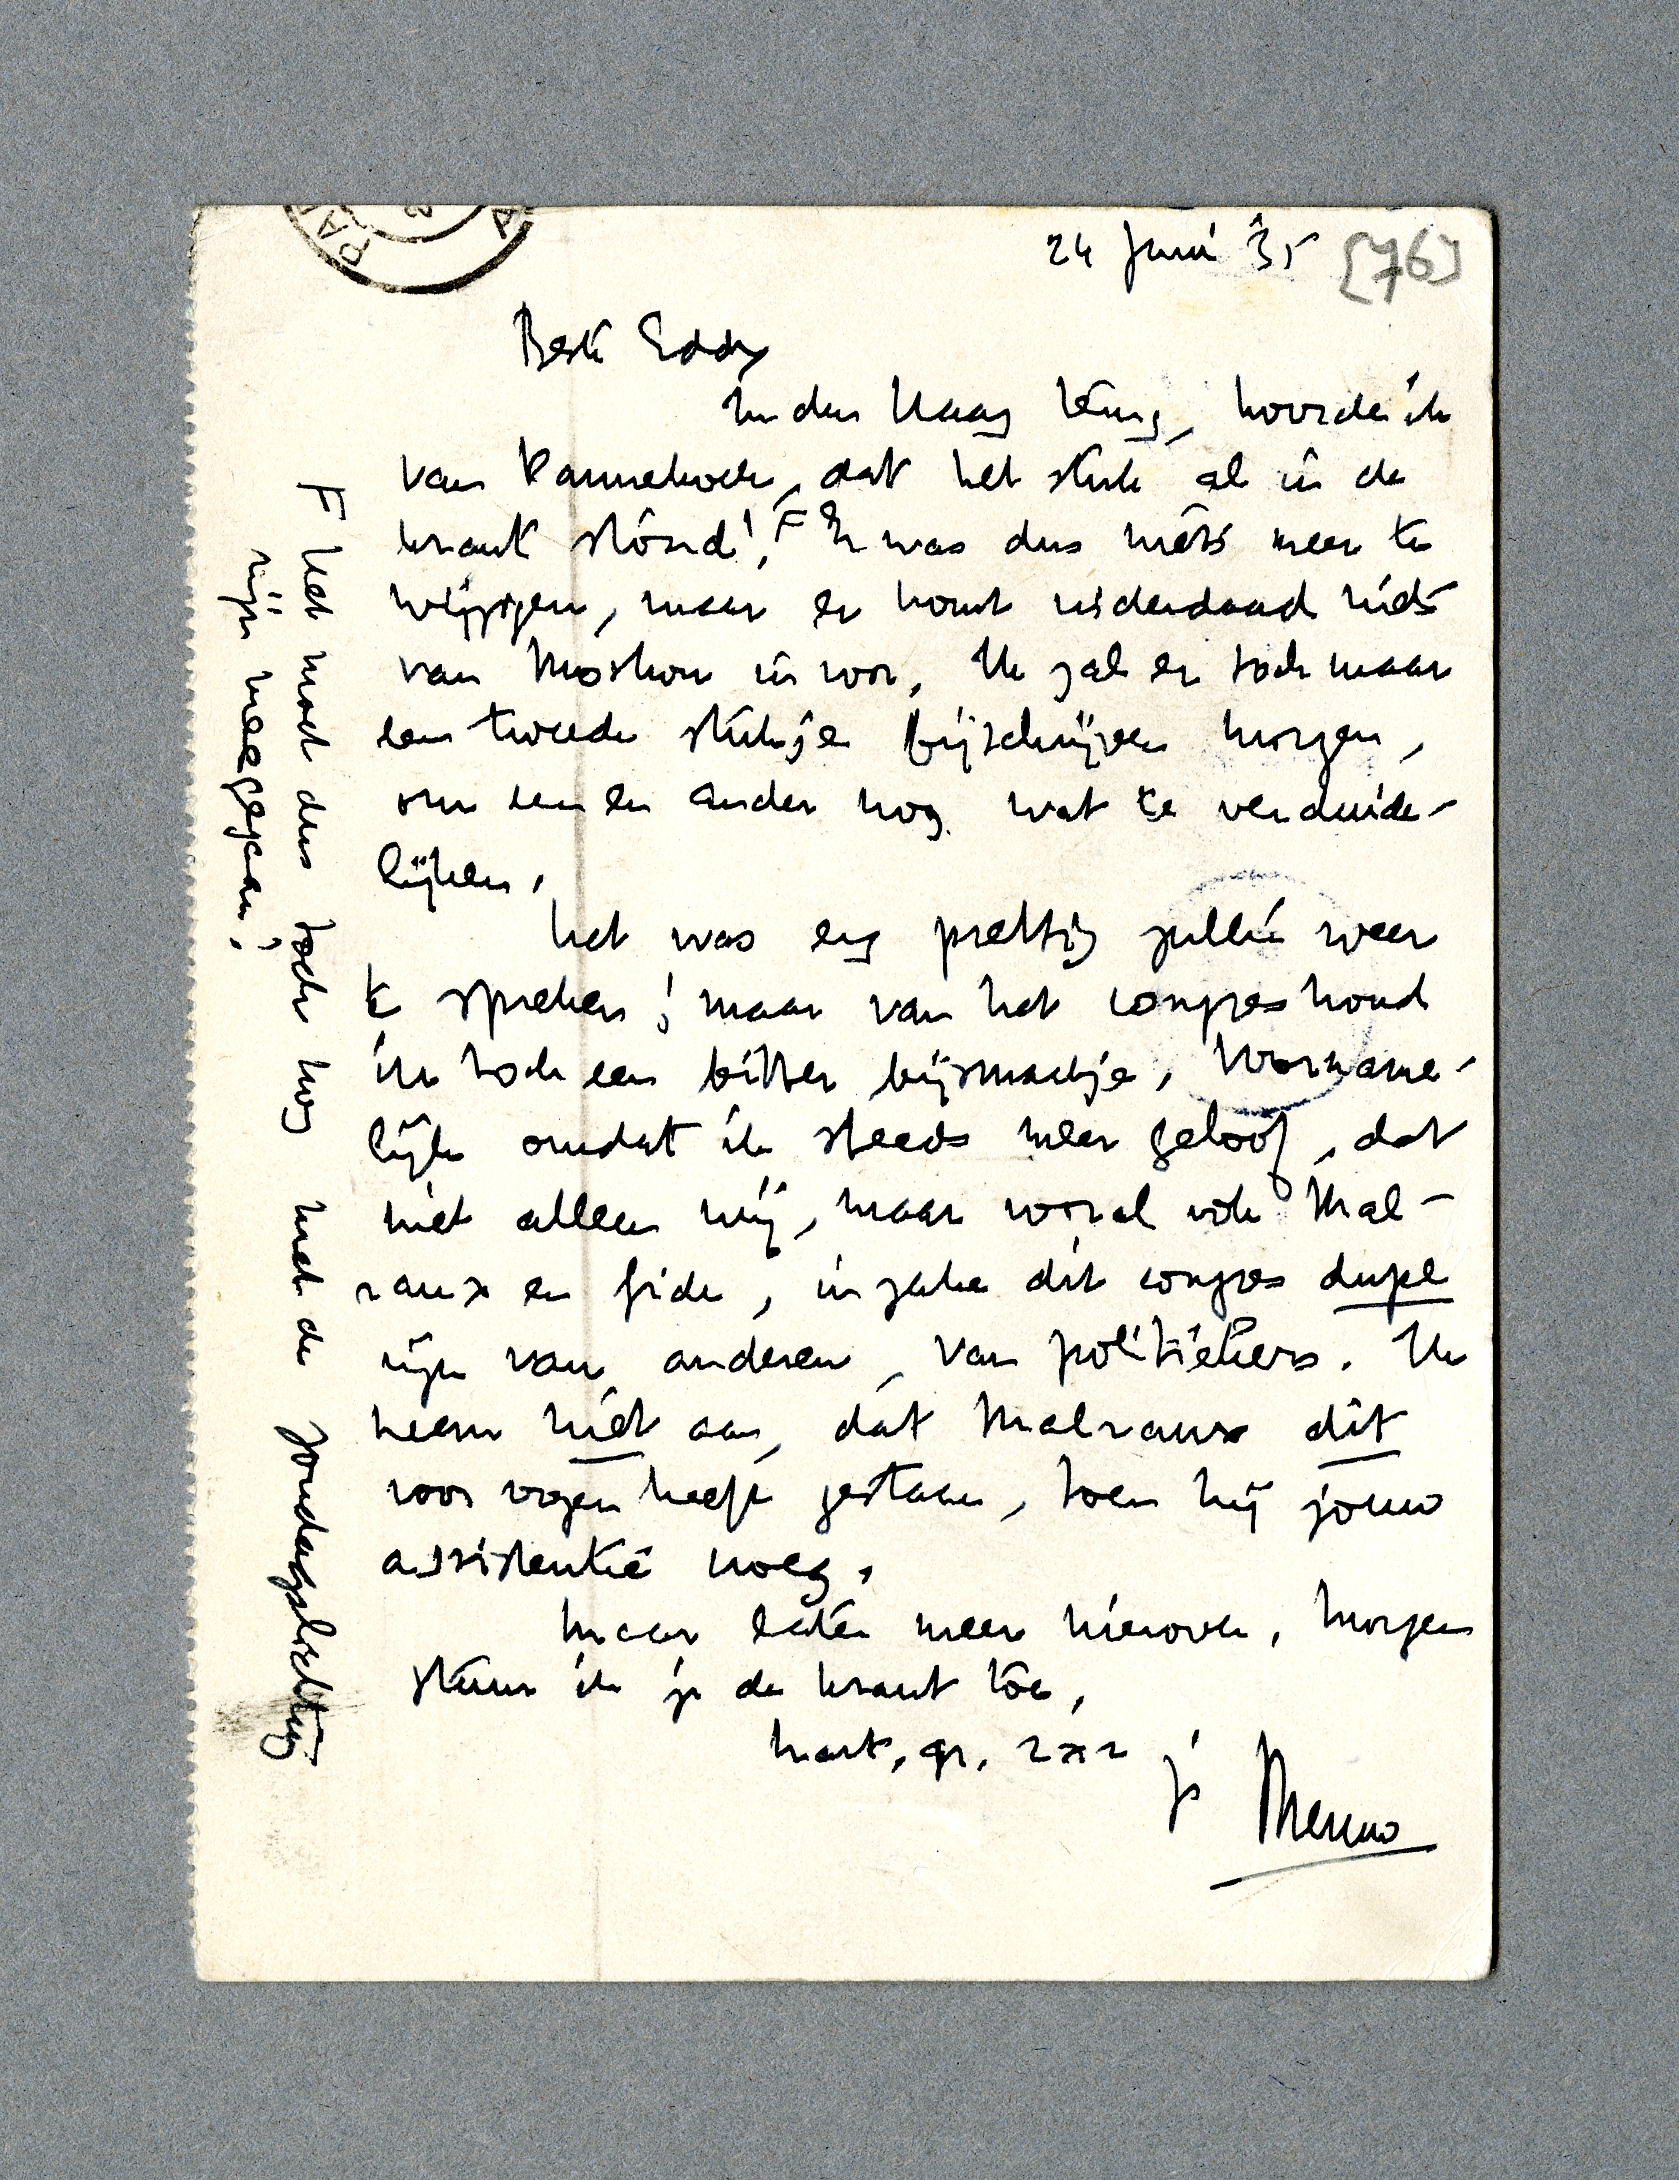 24 Juni '35 [76]
Beste Eddy
In den Haag terug, hoorde ik
van Pannekoek, dat het stuk al in de
krant stònd! F Er was dus niets meer te
wijzigen, maar er komt inderdaad niets
van Moskou in voor. Ik zal er toch maar
een tweede stukje bijschrijven morgen,
om een en ander nog wat te verduide-
lijken.
Het was erg prettig jullie weer
te spreken; maar van het congres houd
ik toch een bitter bijsmaakje. Voorname-
lijk omdat ik steeds meer geloof, dat
niet alleen wij, maar vooral ook Mal-
raux en Gide, inzake dit congres dupe
zijn van anderen, van politiekers. Ik
neem niet aan, dat Malraux dit
voor oogen heeft gestaan, toen hij jouw
assistentie vroeg.
Maar later meer hierover. Morgen
stuur ik je de krant toe.
hart. gr. 2 x 2
je Menno
F Het moet dus toch nog met de Zondagslichting
zijn meegegaan!
PA